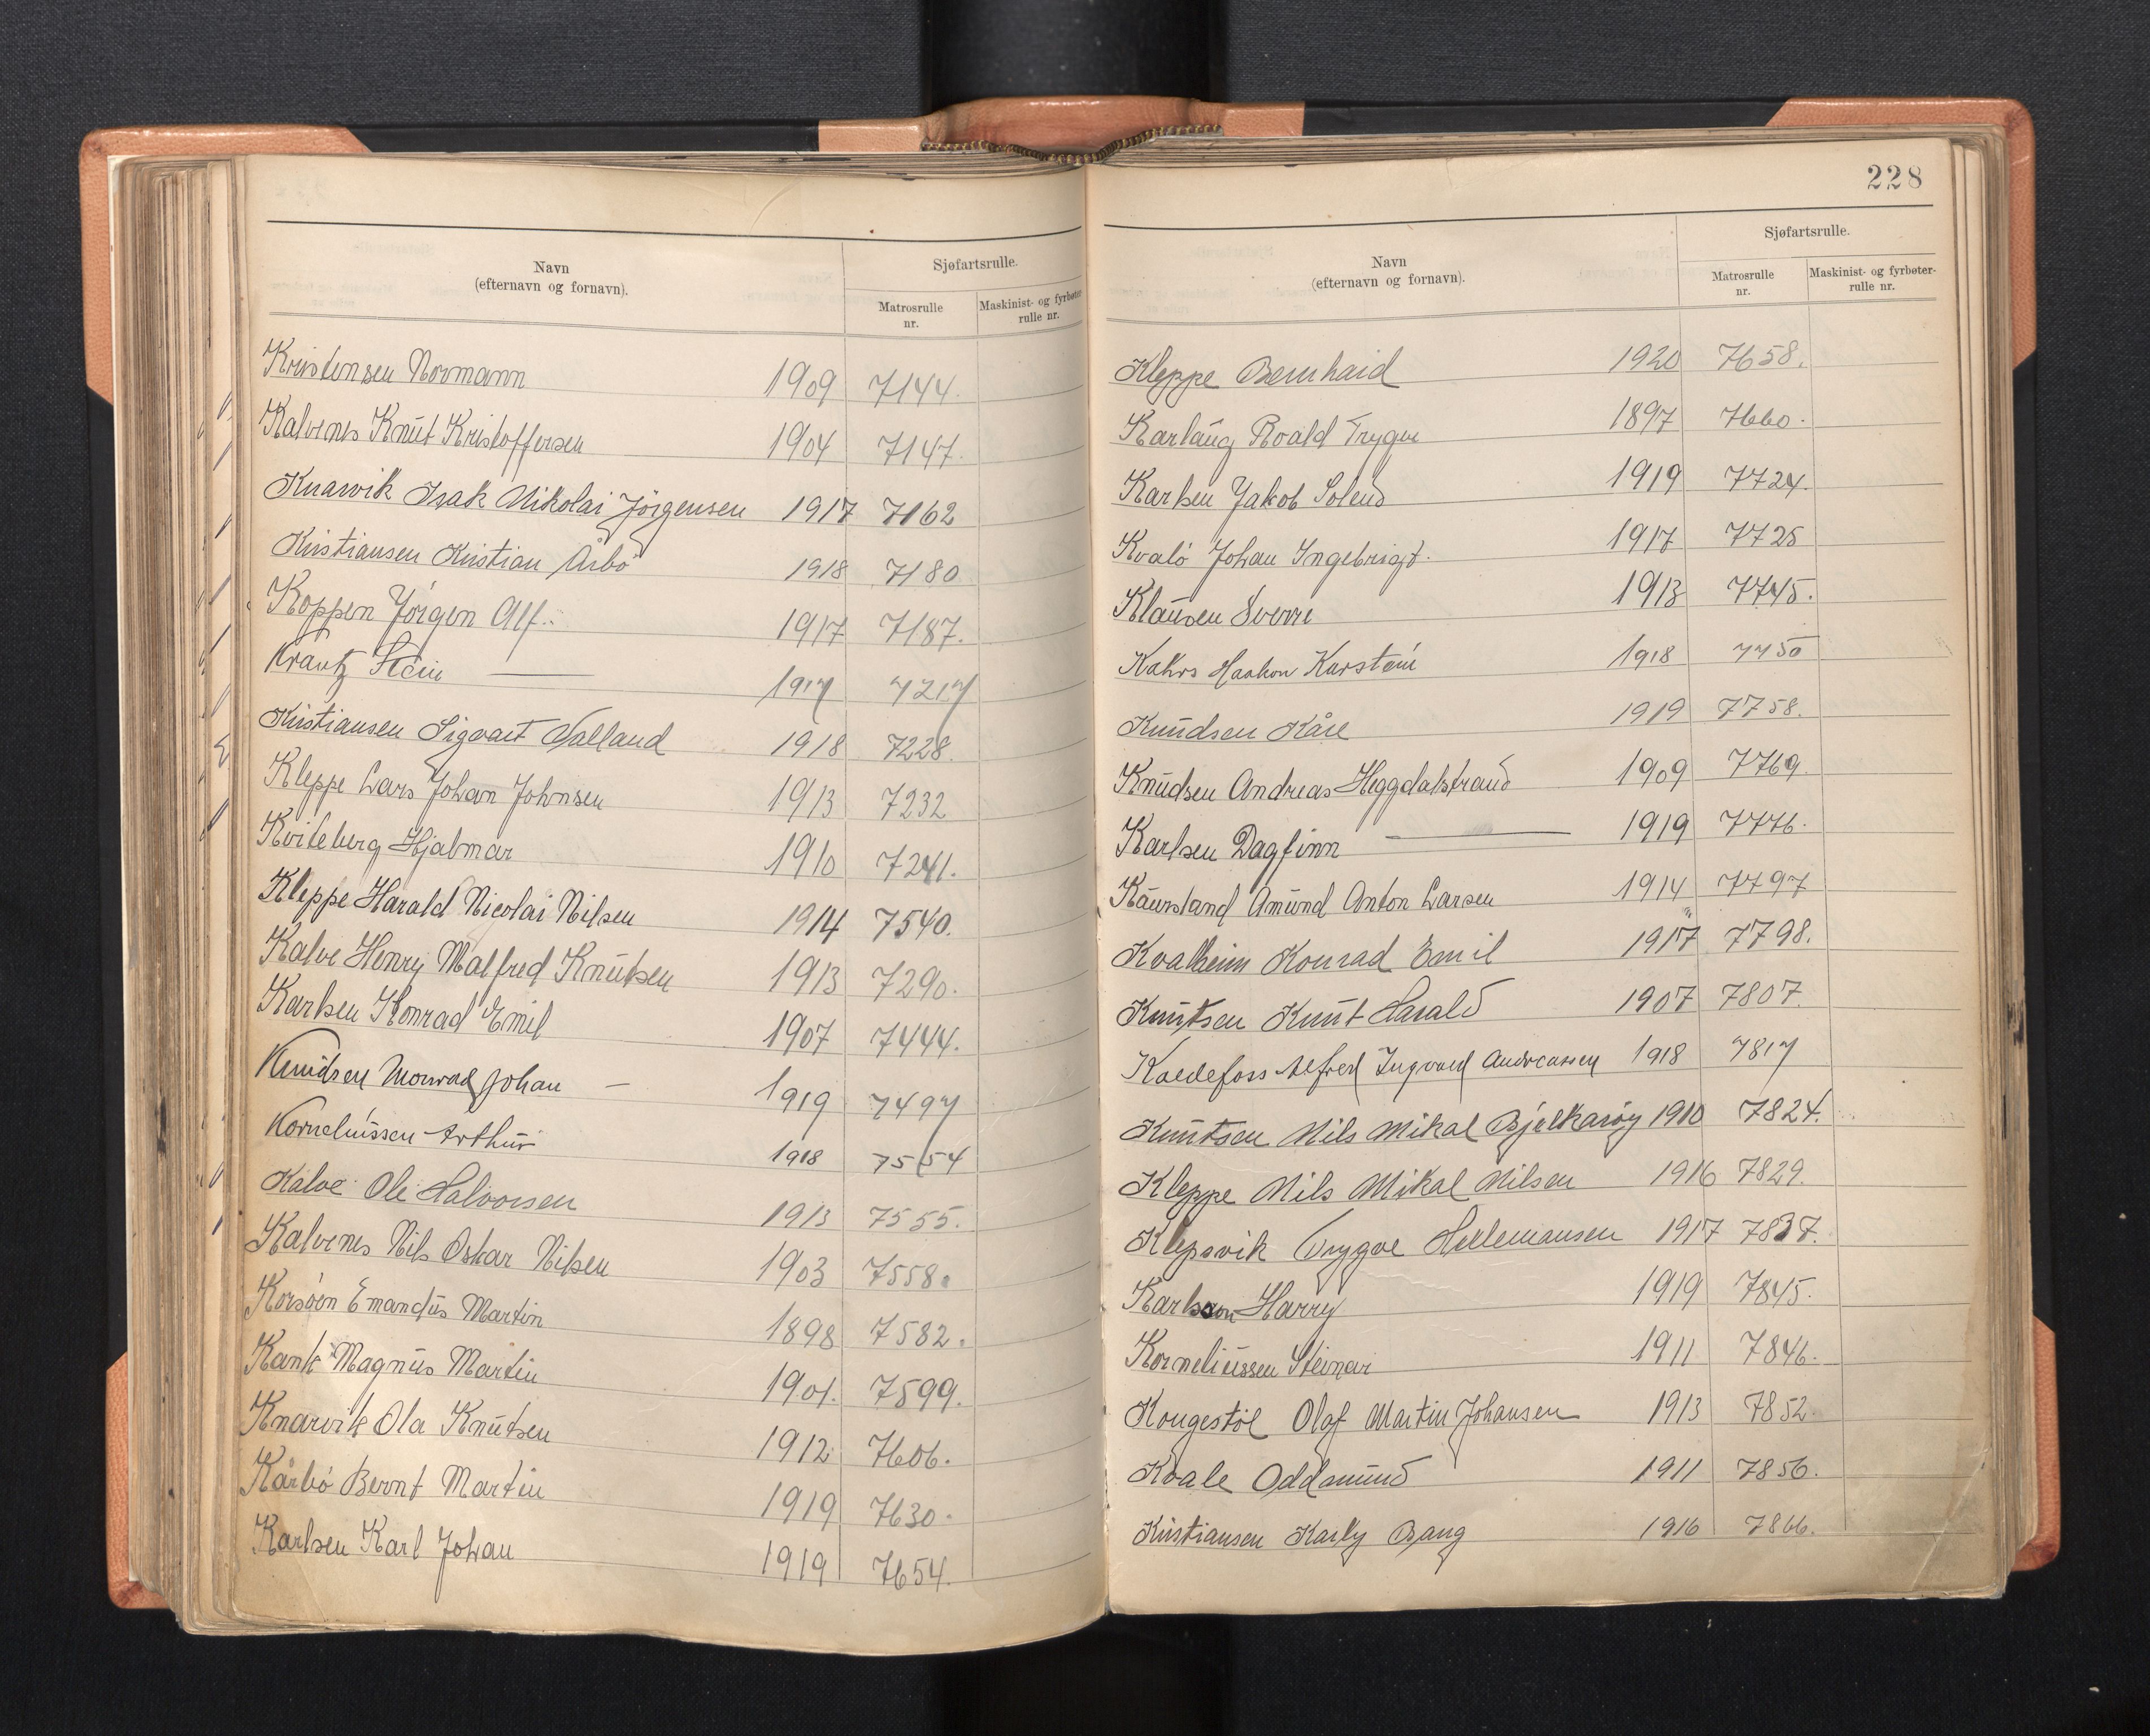 Navn
(efternavn og fornavn).
Sjøfartsrulle.
Matrosrulle
nr.
Maskinist- og fyrbøter-
rulle nr.
Kristensen Normann 1909 7144.
Kalvenes Knut Kristoffersen 1904 7147.
Knarvik Isak Nikolai Jörgensen 1917 7162
Kristiansen Kristian Årbö 1918 7180
Koppen Jörgen Alf. 1917 7187.
Krantz Stein 1917 7217
Kristiansen Sigvart Valland 1918 7228.
Kleppe Lars Johan Johnsen 1913 7232
Kviteberg Hjalmar 1910 7241.
Kleppe Harald Nicolai Nilsen 1914 7540.
Kalve Henry Malfred Knutsen 1913 7290.
Karlsen Konrad Emil 1907 7444.
Knudsen Monrad Johan 1919 7497
Korneliussen Arthur 1918 7554
Kalve Ole Halvorsen 1913 7555.
Kalvenes Nils Oskar Nilsen 1903 7558.
Korsöen Emandus Martin 1898 7582.
Kank Magnus Martin 1901. 7599.
Knarvik Ola Knutsen 1912 7606.
Kårbö Bernt Martin 1919 7630.
Karlsen Karl Johan 1919 7654.
228
Navn
(efternavn og fornavn).
Sjøfartsrulle.
Matrosrulle
nr.
Maskinist- og fyrbøter-
rulle nr.
Kleppe Bernhard 1920 7658.
Karlaug Roald Trygve 1897 7660.
Karlsen Jakob Solend 1919 7724.
Kvalö Johan Ingebrigt. 1917 7725
Klausen Sverre 1913 7745.
Kahrs Haakon Karstein 1918 7750
Knudsen Kåre 1919 7758.
Knudsen Andreas Heggdalstrand 1909 7769.
Karlsen Dagfinn 1919 7776.
Kaursland Amund Anton Larsen 1914 7797
Kvalheim Konrad Emil 1917 7798.
Knutsen Knut Harald 1907 7807.
Kaldefoss Alfred Ingvard Andreassen 1918 7817
Knutsen Nils Mikal Bjelkaröy 1910 7824.
Kleppe Nils Mikal Nilsen 1916 7829.
Klepsvik Trygve Hellemansen 1917 7837.
Karlsson Harry 1919 7845.
Korneliussen Steinar 1911 7846.
Kongestöl Olaf Martin Johansen 1913 7852.
Kvale Oddmund 1911 7856.
Kristiansen Karly Bang 1916 7866.